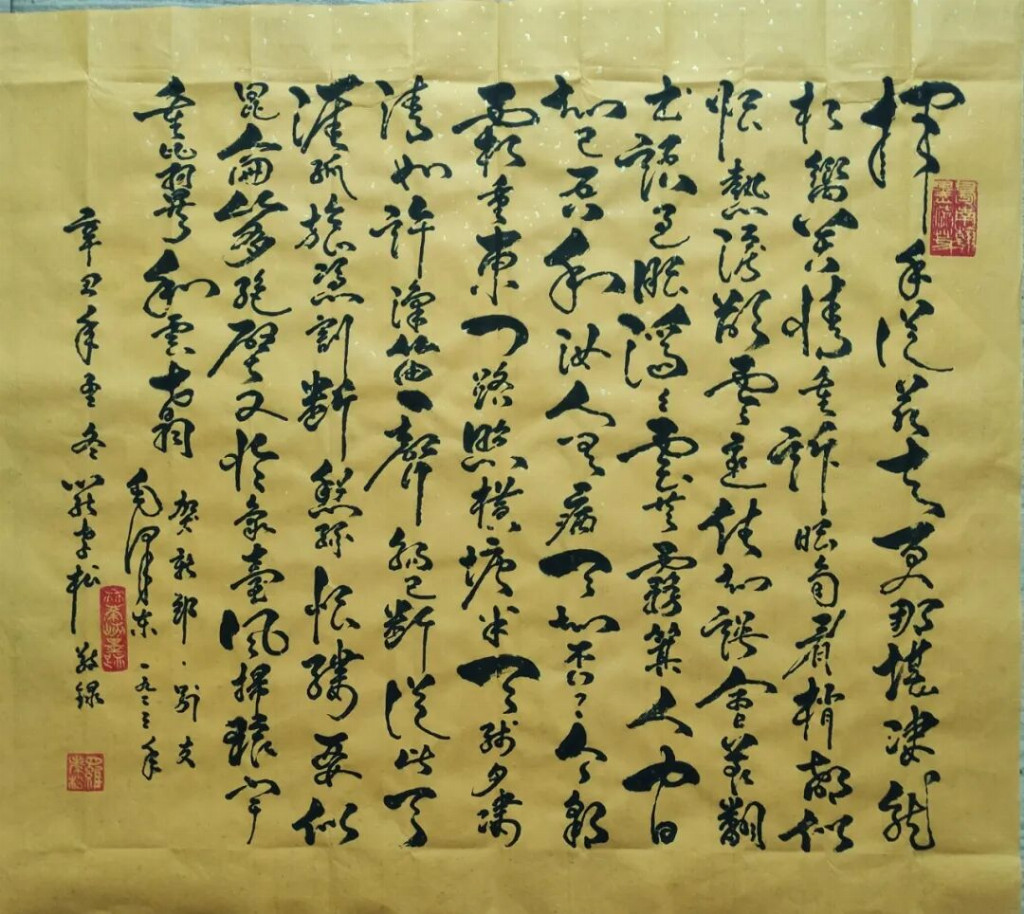 揮手從茲去更那堪凄然
相嚮苦情重訴眼角眉梢都似
恨熱淚欲零還住知誤會前翻
書語過眼滔滔雲共霧算人間
知己吾和汝人有病天知否今朝
霜重東門路照橫塘半天殘月凄
清如許汽笛一聲腸已斷從此天
涯孤旅憑割斷愁絲恨縷要似
昆侖崩絕壁又恰像臺風掃環宇
重比翼和雲翥
賀新郎、別友
毛澤東一九二三年
辛丑年孟冬 松敬錄